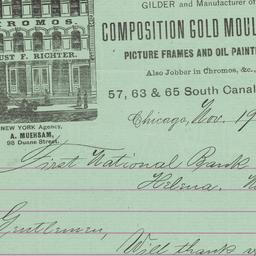 CHROMOS.
UST F. RICHTER.
NEW YORK Agency,
A. MUEHSAM,
98 Duane Street.
GILDER and Manufacturer of
COMPOSITION GOLD MOUL
PICTURE FRAMES AND OIL PAINT
Also Jobber in Chromos, &c.,
57, 63 & 65 South Canal
Chicago, Nov. 19
First National Bank
Helena,
Gentlemen,
Will thank